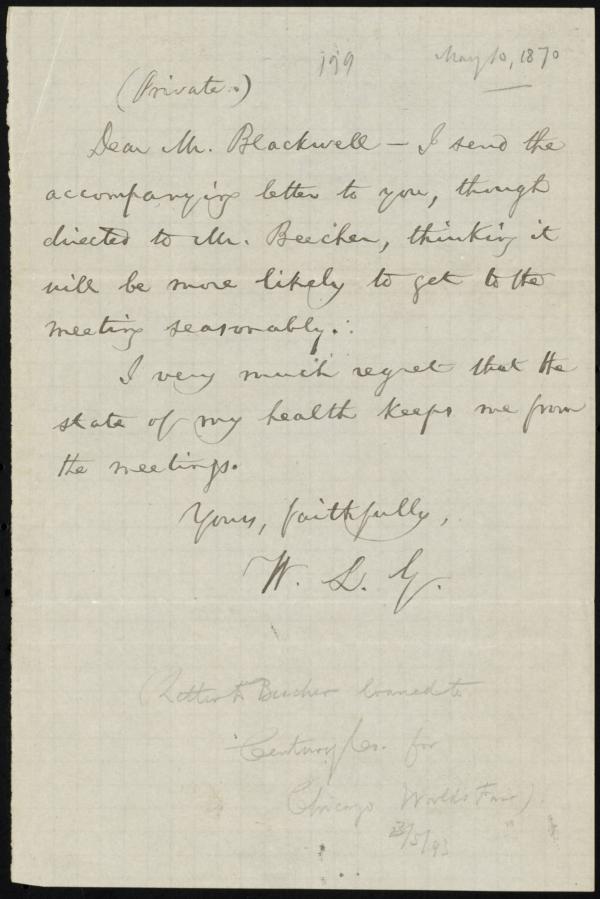 May 10, 1870
(Private.)
Dear Mr. Blackwell — I send the
accompanying letter to you, though
directed to Mr. Beecher, thinking it
will be more likely to get to the
meeting seasonably.
I very much regret that the
state of my health keeps me from
the meetings.
Yours, faithfully,
W. L. G.
(Letter to Beecher loaned to
Century Co. for
Chicago Worlds Fair)
/5/93